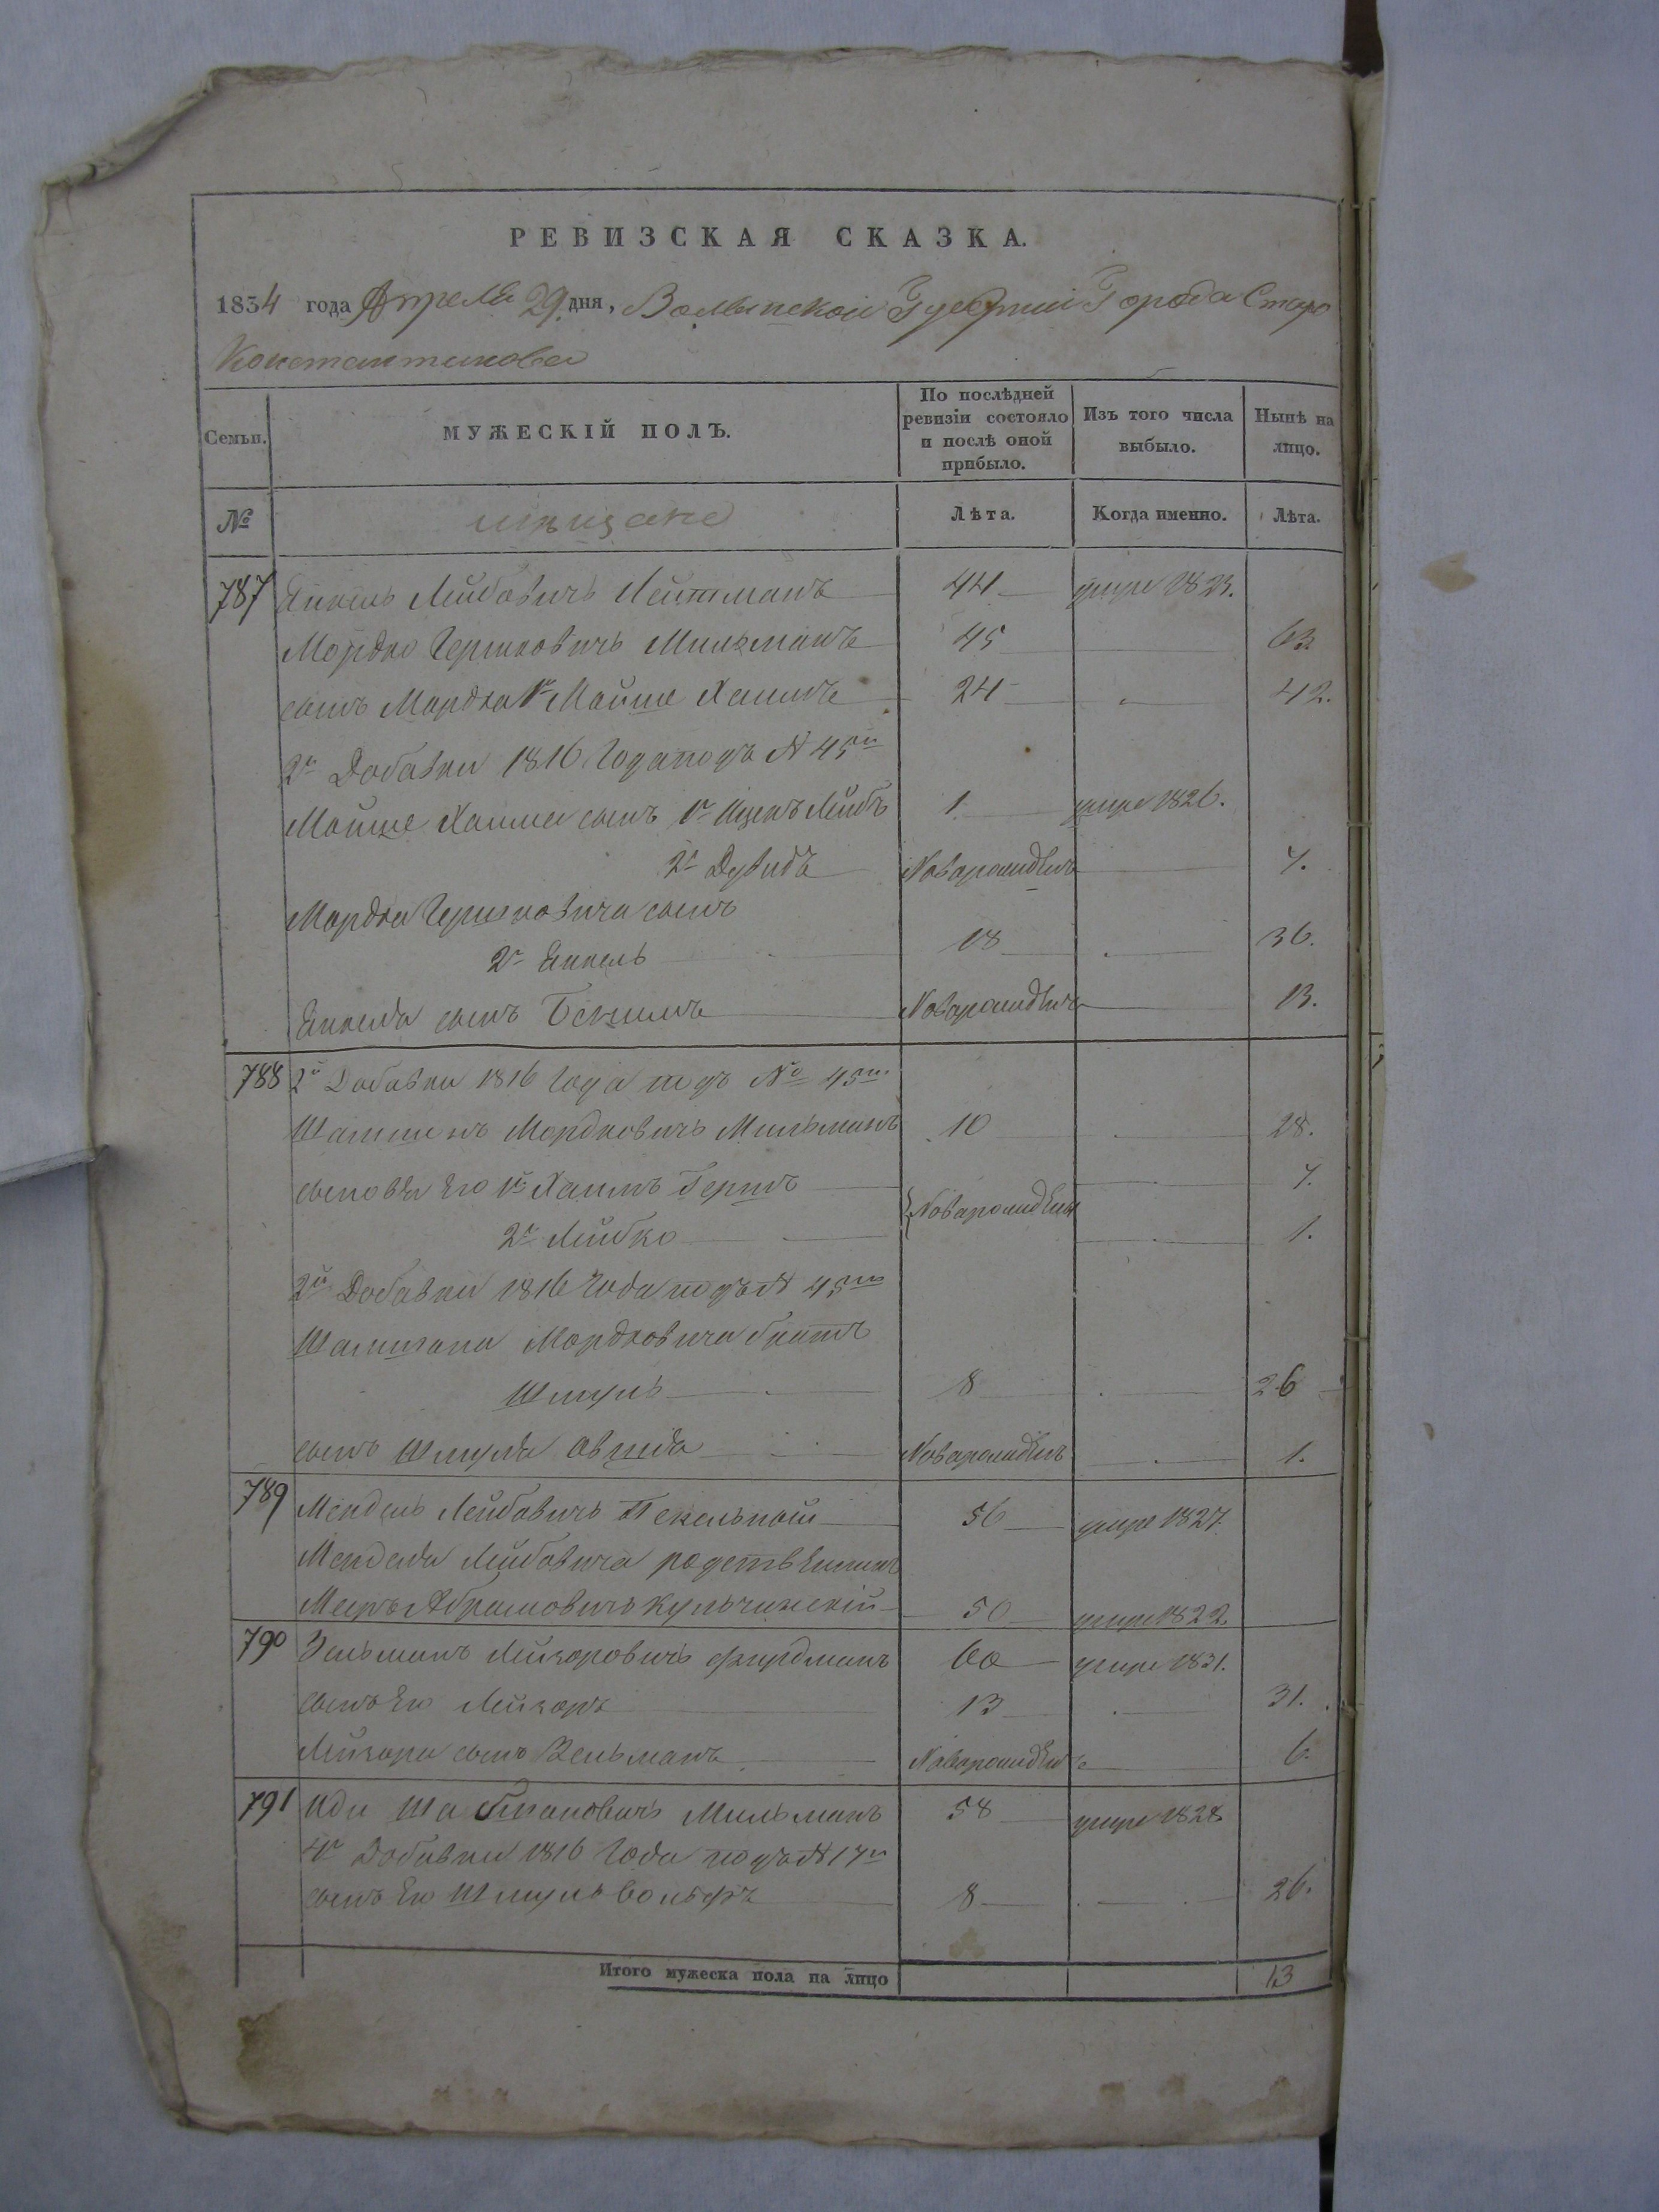 РЕВИЗСКАЯ СКАЗКА.
1834 года Апреля 29 дня, Волынской Губерніи Города Старо
Константинова
Семьи. МУЖЕСКІЙ ПОЛЪ. По послѣдней ревизіи состояло и послѣ оной прибыло. Изъ того числа выбыло. Нынѣ на лицо.
№ мѣщане Лѣта. Когда именно. Лѣта.
787 Янкель Лейбовичъ 44 умре 1823.
Мордко Гершковичъ Мильманъ 45 63
сынъ Мордка 1й Мойше Хаимъ 24 42.
2й Добавки 1816 Года подъ № 45м
Мойше Хаима сынъ 1й Ицекъ Лейбъ 1. умре 1826.
2й Дувидъ Новорожденъ 7.
Мордка Гершковича сынъ
2й Янкель 18 36.
Янкеля сынъ Новорожденъ 13.
788 2й Добавки 1816 Года подъ № 45м
Мордковичъ Мильманъ 10 28.
сыновья Его 1й Хаимъ Гершъ 7.
Новорожденны
2й Лейбко 1.
2й Добавки 1816 Года подъ № 45м
Мордковича братъ
Шмуль 8 26
сынъ Шмуля Овшія Новорожденъ 1.
789 Мендель Лейбовичъ Пекельный 56 умре 1827.
Менделя Лейбовича родственникъ
Мееръ Абрамовичъ Кульчинскій 50 умре 1822.
790 Зельманъ Лейзоровичъ Фирдманъ 60 умре 1831.
сынъ Его Лейзоръ 13 31.
Лейзора сынъ Зельманъ Новорожденъ 6.
791 Иди Мильманъ 58 умре 1828
4й Добавки 1816 Года подъ № 17м
сынъ Его Шмуль Вольфъ 8 26.
Итого мужеска пола на лицо 13